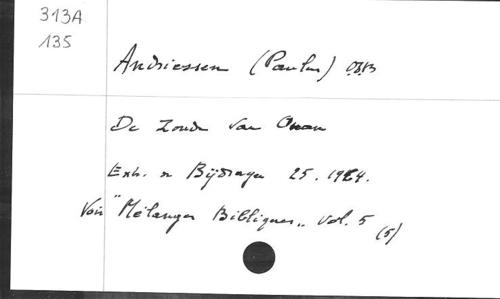 313A
135
Andriessen (Paulus) O.S.B
De zonde van Onan
Extr. v Bijdragen 25. 1964.
Voir "Mélanges Bibliques„ vol. 5
(5)